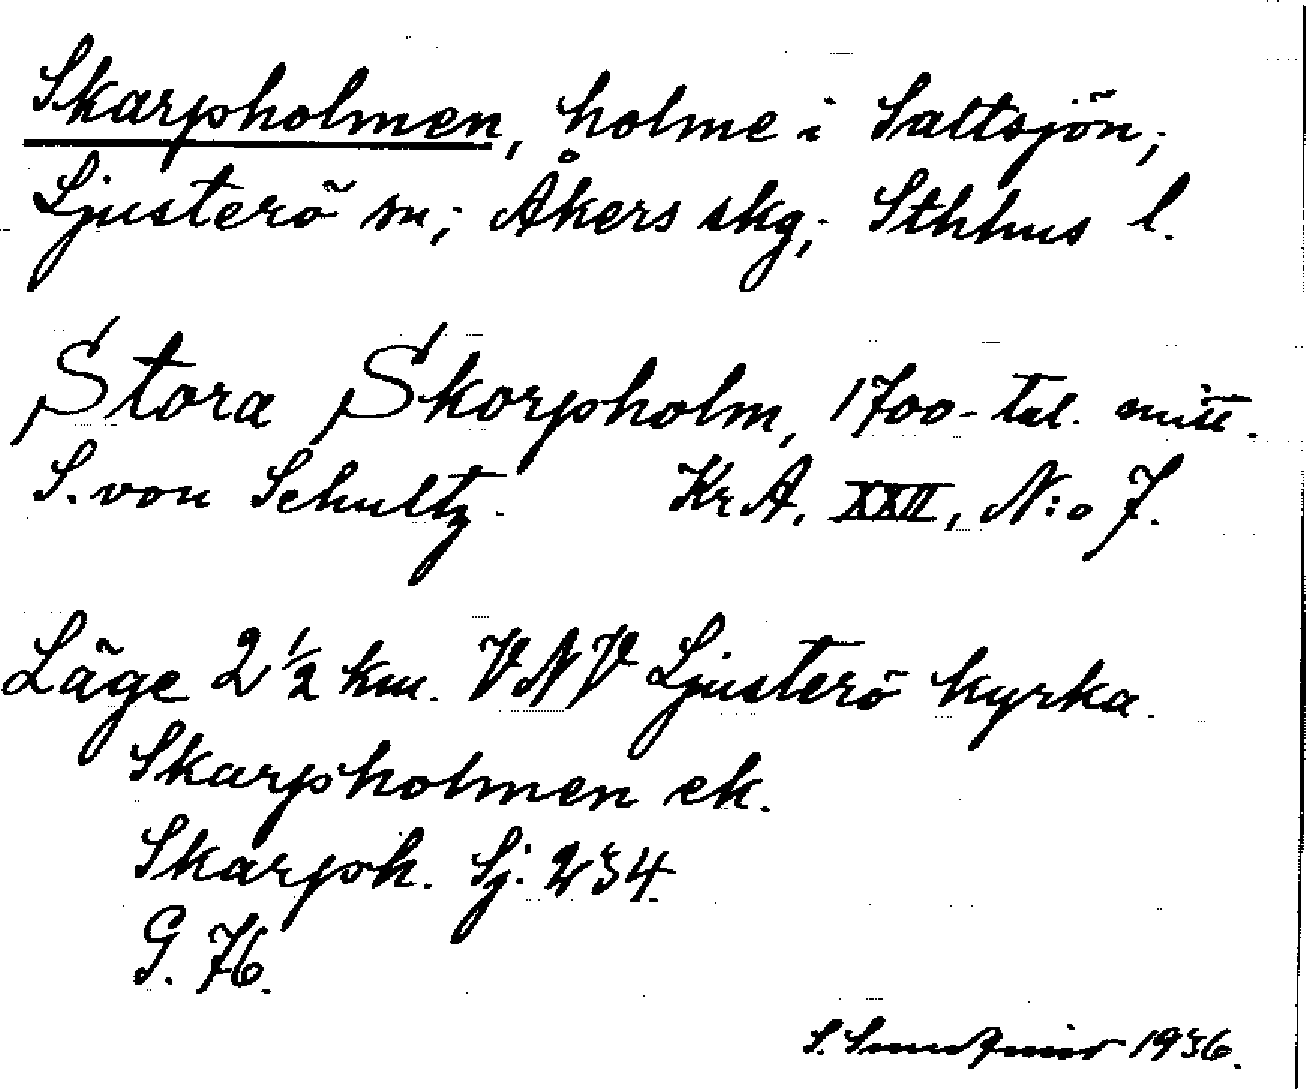 Skarpholmen, holme i Saltsjön;
Ljusterö sn; Åkers skg; Sthhus l.
Stora Skorpholm, 1700-tal. mitt.
S. von Schultz. Kr A, XXII, N:o 7.
Läge 2 1/2 km. VNV Ljusterö kyrka.
Skarpholmen ek.
Skarph. Sj. 234
G. 76.
S. 1936.